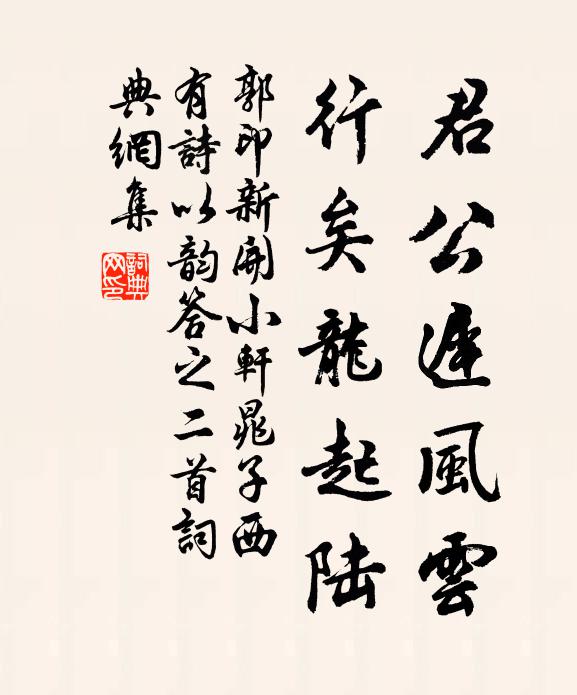 君公遲風雲
行矣龍起陸
郭印新開小軒晁子西
有詩以韵答之二首詞
典網集
詞典網印